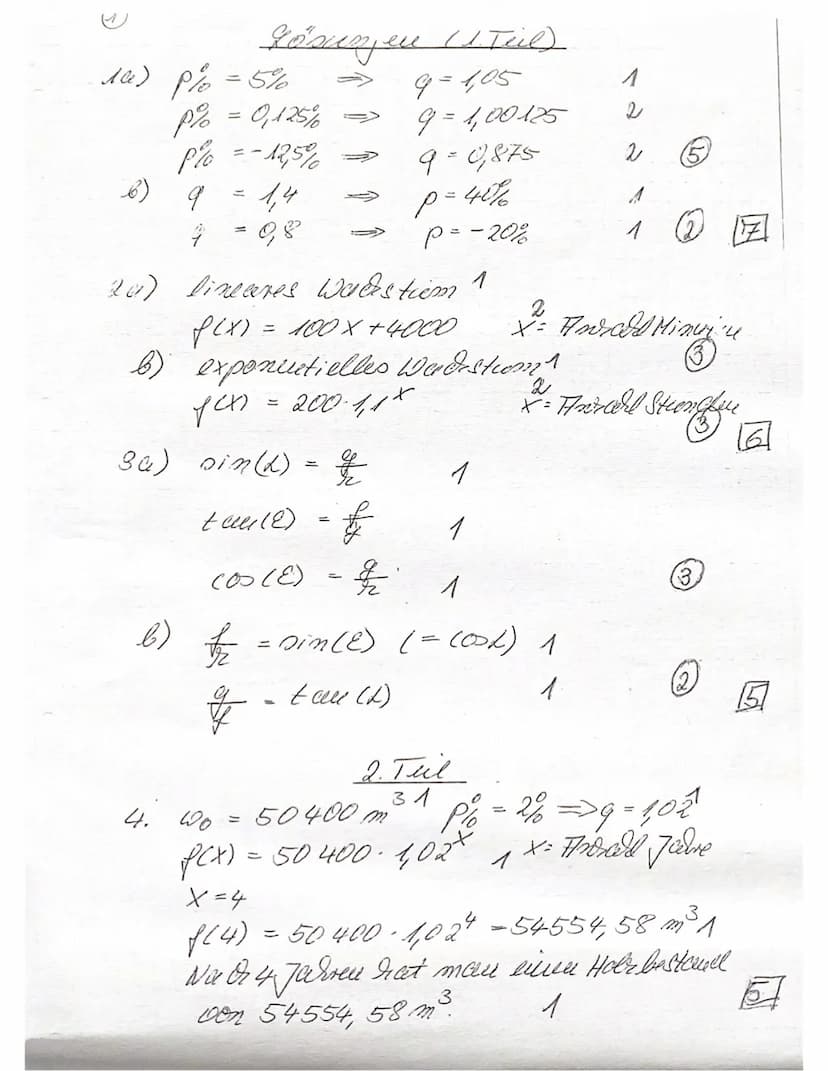 1
Lösungen (1. Teil)
1a) p% = 5% => q = 1,05 1
p% = 0,125% => q = 1,00125 2
p% = -12,5% => q = 0,875 2 5
b) q = 1,4 => p = 40% 1
q = 0,8 => p = -20% 1 2 7
2a) lineares Wachstum 1
f(x) = 100x + 4000 2 x = Anzahl Minuten
3
b) exponentielles Wachstum 1
f(x) = 200 · 1,1^x 2 x = Anzahl Stunden
3 6
3a) sin(α) = g/r 1
tan(ε) = f/g 1
cos(ε) = g/r 1 3
b) f/r = sin(ε) (= cos α) 1
g/f = tan(α) 1 2 5
2. Teil
4. w₀ = 50 400 m³ 1 p% = 2% => q = 1,02 1
f(x) = 50 400 · 1,02^x 1 x = Anzahl Jahre
x = 4
f(4) = 50 400 · 1,02⁴ = 54554,58 m³ 1
Nach 4 Jahren hat man einen Holzbestand
von 54554,58 m³. 1 5